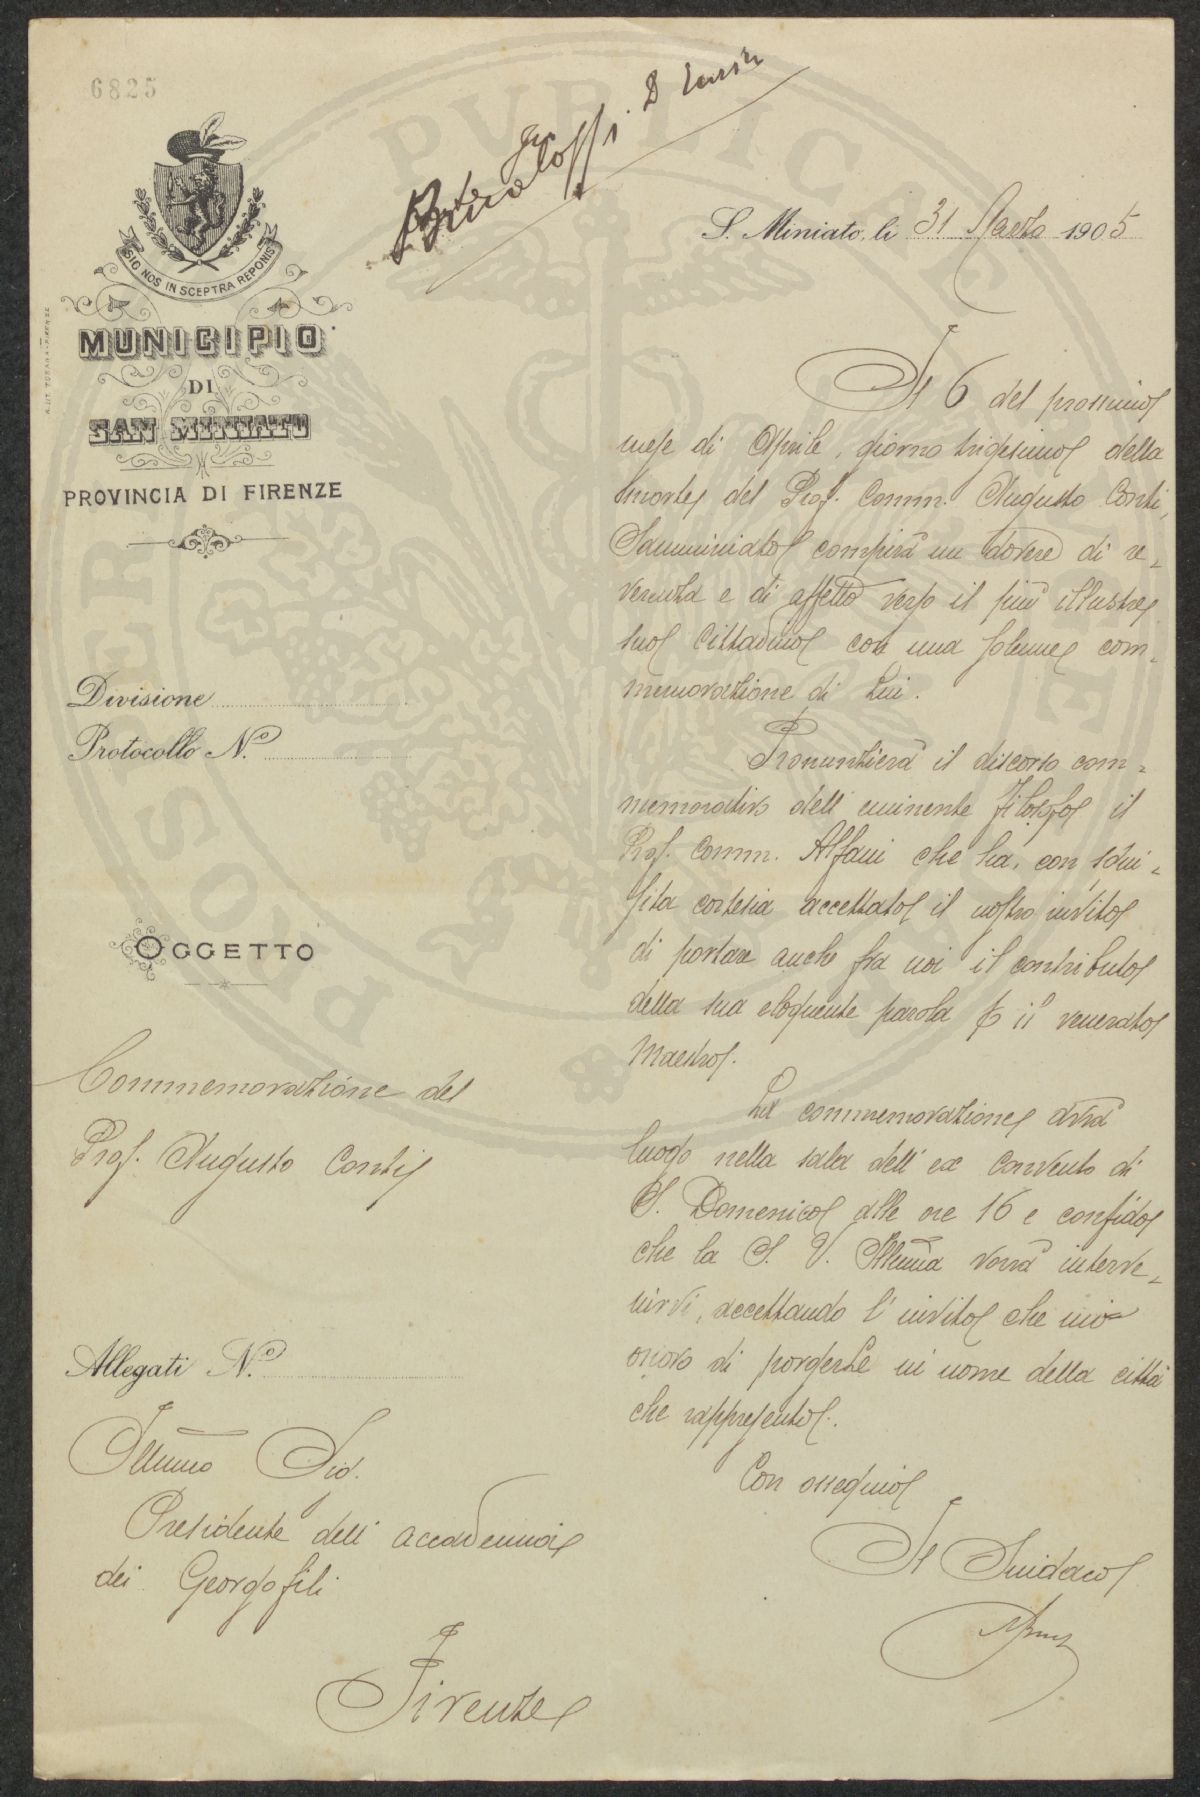 6825
SIC NOS IN SCEPTRA REPONIS
MUNICIPIO
DI
SAN MINIATO
PROVINCIA DI FIRENZE
Divisione
Protocollo N.º
OGGETTO
Commemorazione del
Prof. Augusto Conti
Allegati N.º
Illmo Sig.
Presidente dell'accademia
dei Georgofili
Firenze
S. Miniato, li 31 Marzo 1905
Il 6 del prossimo
mese di Aprile, giorno trigesimo della
morte del Prof. Comm. Augusto Conti,
Samminiato compirà un dovere di re-
verenza e di affetto verso il più illustre
suo Cittadino con una solenne com-
memorazione di Lui.
Pronunzierà il discorso com-
memorativo dell'eminente filosofo il
Prof. Comm. Alfani che ha, con squi-
sita cortesia accettato il nostro invito
di portare anche fra noi il contributo
della sua eloquente parola p il venerato
Maestro.
La commemorazione avrà
luogo nella sala dell'ex Convento di
S. Domenico alle ore 16 e confido
che la S. V. Illma vorrà interve-
nirvi, accettando l'invito che mi
onoro di porgerle in nome della città
che rappresento.
Con ossequio
Il Sindaco
PROSPERITATI PUBLICAE